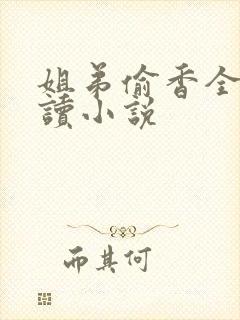 姐弟偷香全
讀小説
而其何